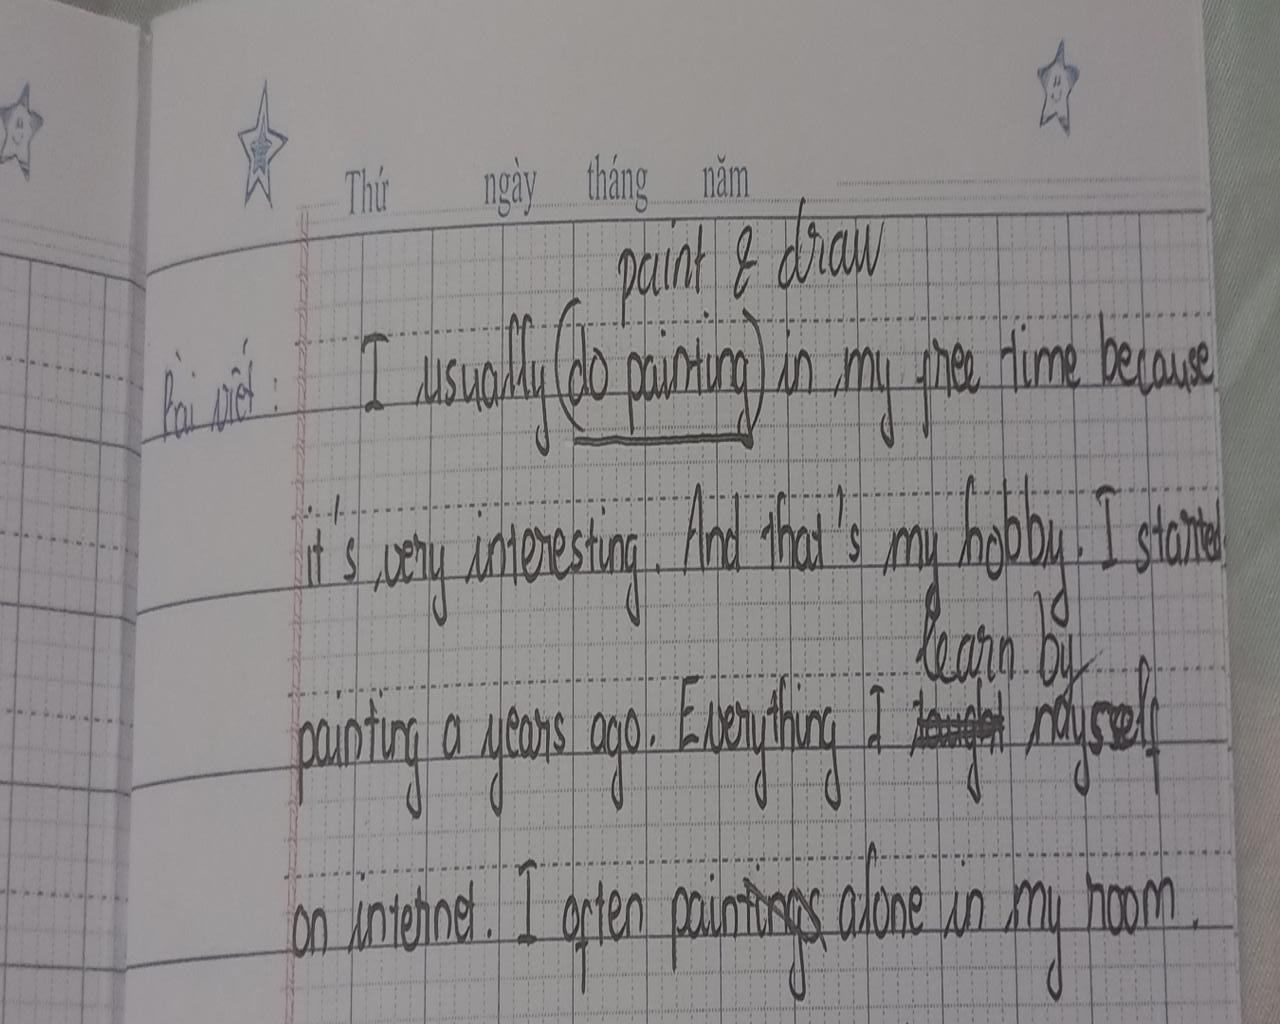 Thứ ngày tháng năm
paint & draw
Bài viết: I usually (do painting) in my free time because
it's very interesting. And that's my hobby. I started
learn by
painting a years ago. Everything I myself
on internet. I often paintings alone in my room.